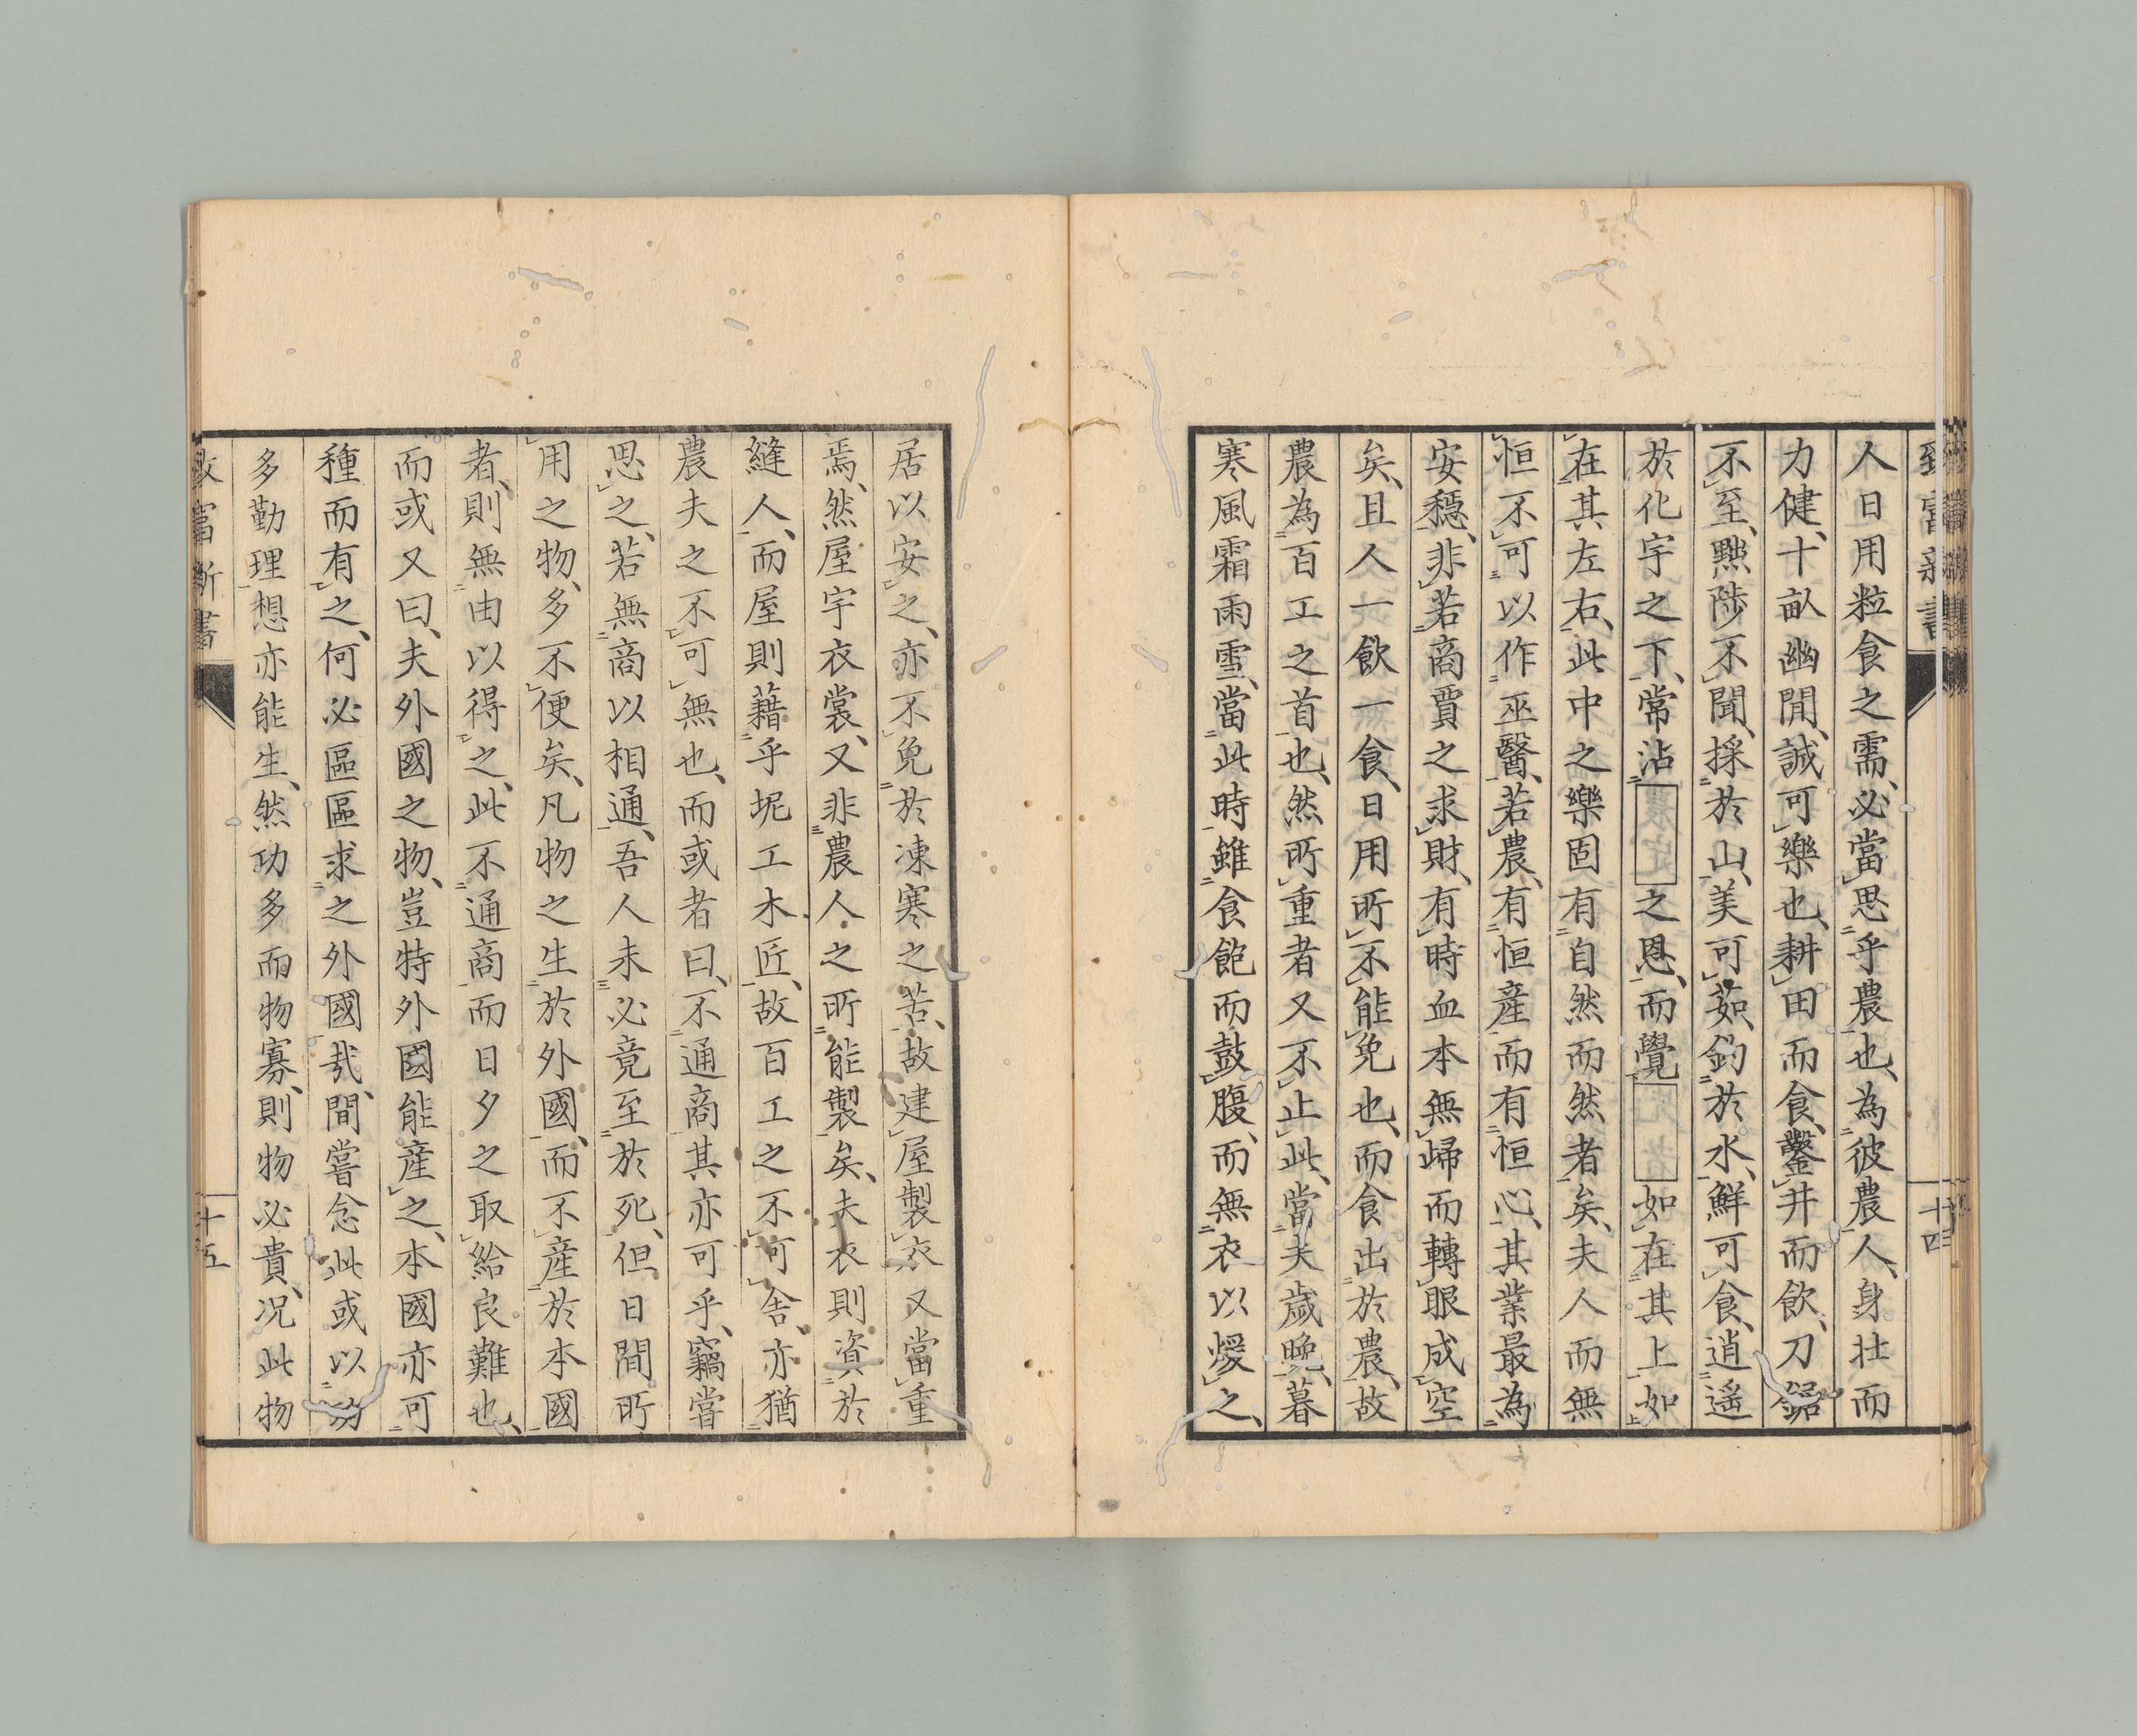 致富新書 十四
人日用粒食之需、必當思乎農也、為彼農人、身壮而
力健、十畝幽閒、誠可樂也、耕田而食、鑿井而飲、刀鋸
不至、黜陟不聞、採於山、美可茹、釣於水、鮮可食、逍遥
於化宇之下、常沾之恩、而覺如在其上如
在其左右、此中之樂固有自然而然者矣、夫人而無
恒不可以作巫醫、若農、有恒産而有恒心、其業最為
安穏、非若商賈之求財、有時血本無歸而轉眼成空
矣、且人一飲一食、日用所不能免也、而食出於農、故
農為百工之首也、然所重者又不止此、當夫歳晩、暮
寒風霜雨雪、當此時雖食飽而鼓腹、而無衣以煖之、
居以安之、亦不免於凍寒之苦、故建屋製衣又當重
焉、然屋宇衣裳、又非農人之所能製矣、夫衣則資於
縫人、而屋則藉乎坭工木匠、故百工之不可舍、亦猶
農夫之不可無也、而或者曰、不通商其亦可乎、竊嘗
思之、若無商以相通、吾人未必竟至於死、但日間所
用之物、多不便矣、凡物之生於外國、而不産於本國
者、則無由以得之、此不通商而日夕之取給良難也、
而或又曰、夫外國之物、豈特外國能産之、本國亦可
種而有之、何必區區求之外國哉、間嘗念此或以功
多勤理想亦能生、然功多而物寡、則物必貴、况此物
致富新書 十五